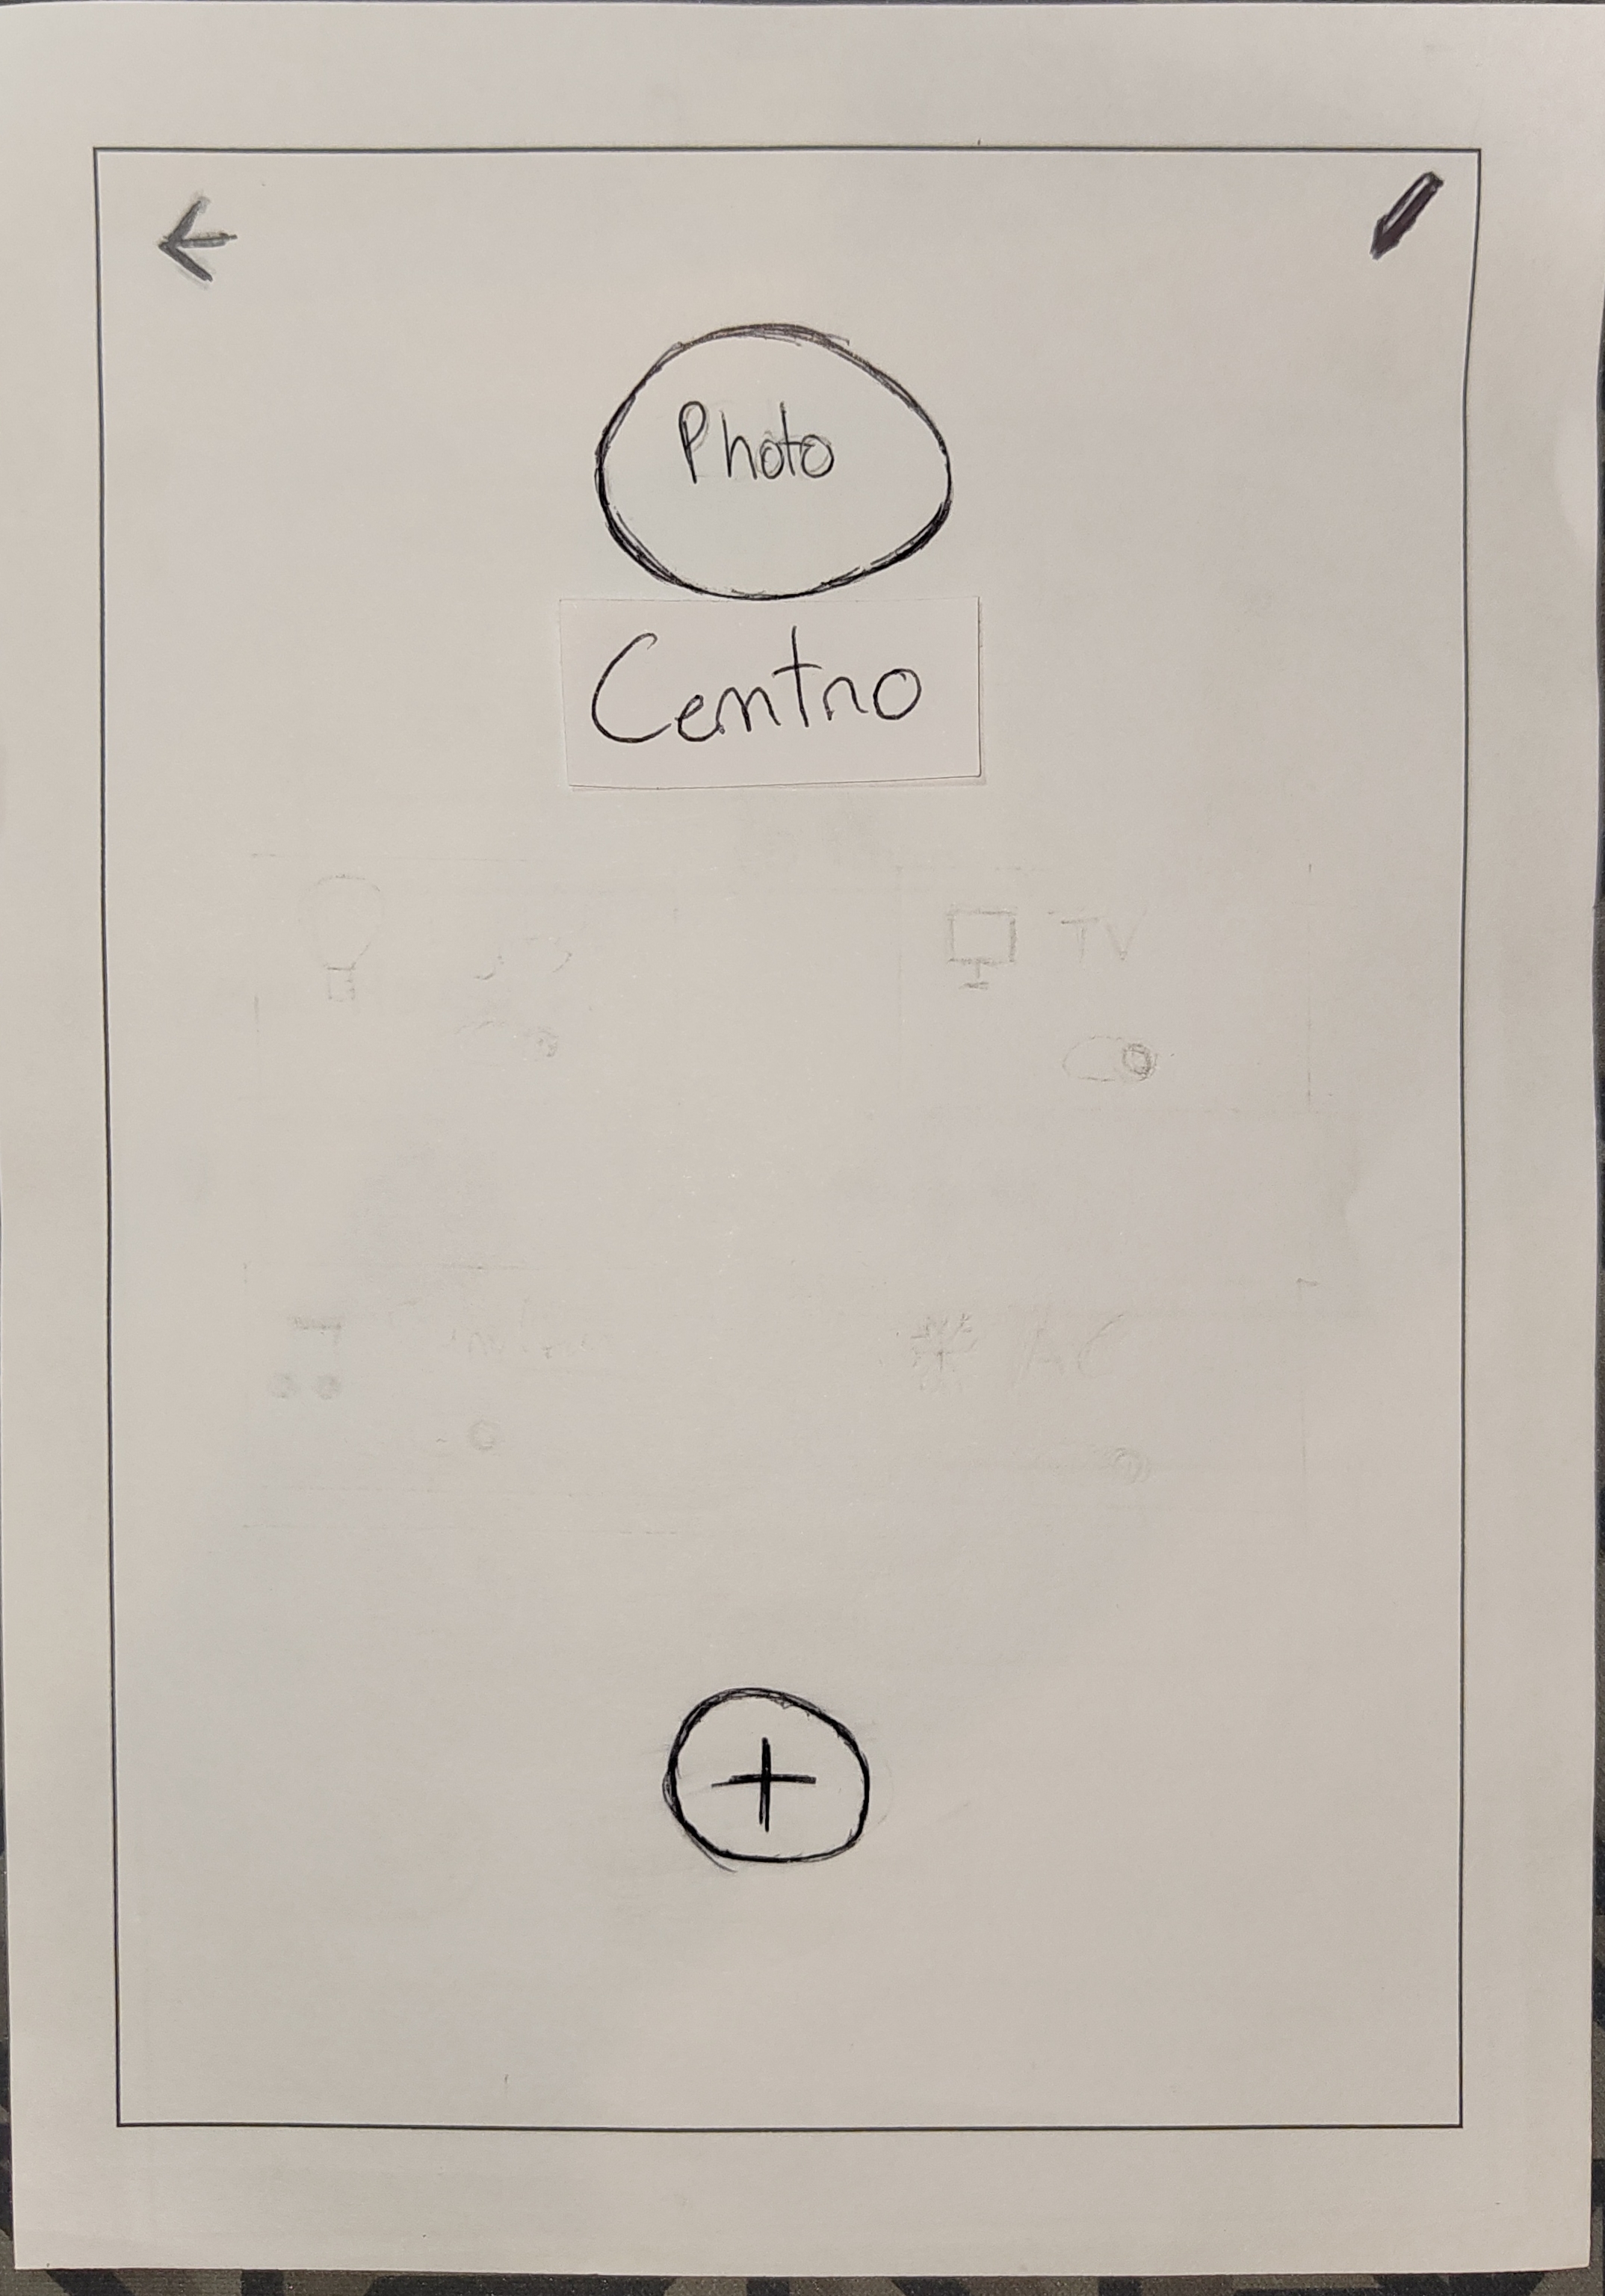 Photo
Centro
TV
AC